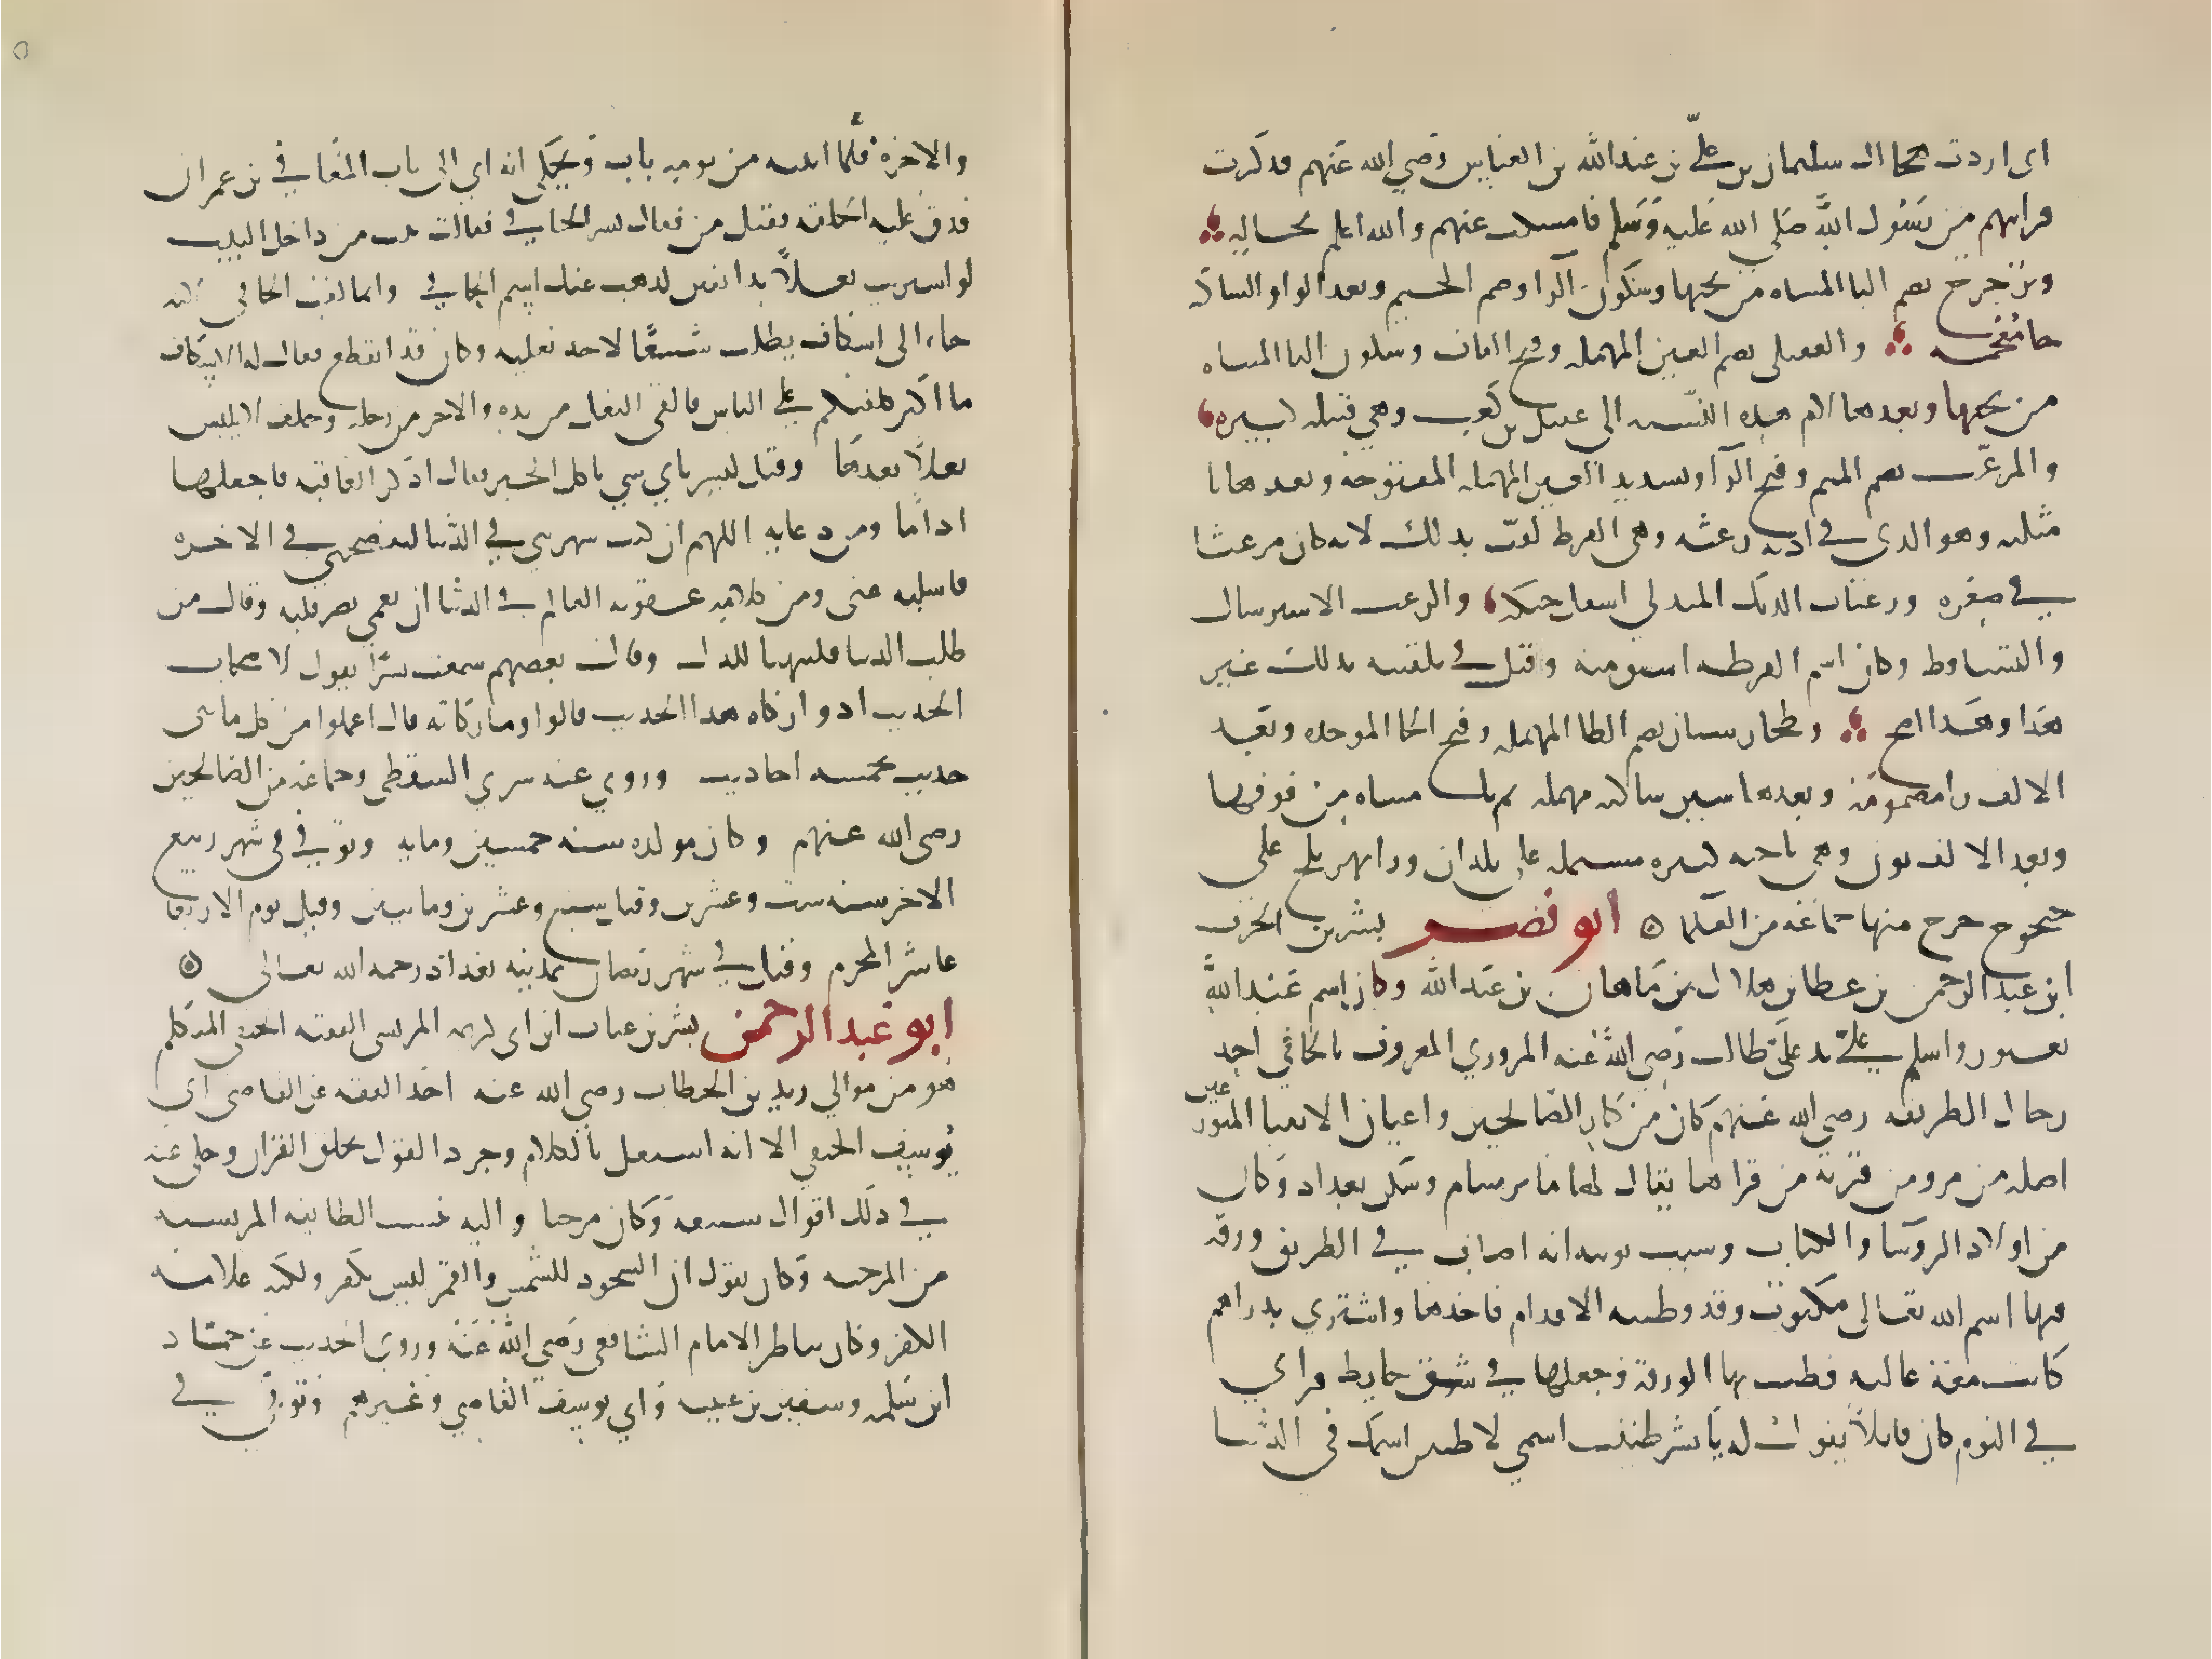 اى اردت هجا ال سليمان بن على بن عبد الله بن العباس رضي الله عنهم فذكرت
قرابتهم من رسول الله صلى الله عليه وسلم فامسكت عنهم والله اعلم بحاله
ويرجوخ بفتح اليا المثناه من تحتها وسكون الرا وضم الجيم وبعد الواو الساكنه
خا معجمه والعقيلى بضم العين المهمله وفتح القاف وسكون اليا المثناه
من تحتها وبعدها لام هذه النسبه الى عقيل بن كعب وهى قبيله كبيره
والمرعث بضم الميم وفتح الرا وتشديد العين المهمله المفتوحه وبعدها ثا
مثلثه وهو الذى فى اذنه رعثه وهى القرط لقب بذلك لانه كان مرعثا
في صغره ورعثات الديك المتدلي اسفل حنكه والرعث الاسترسال
والتساقط وكان اسم القرطه اشتق منه وقيل في تلقيبه بذلك غير
هذا وهذا اصح وطخارستان بضم الطا المهمله وفتح الخا الموحده وبعد
الالف را مضمومه وبعدها سين ساكنه مهمله ثم تا مثناه من فوقها
وبعد الالف نون وهى ناحيه كبيره مشتمله على بلدان ورا نهر بلخ على
جيحوح خرج منها جماعه من العلما ابو نصر بشر بن الحرث
ابن عبد الرحمن بن عطا بن هلال بن ماهان بن عبد الله وكان اسم عبد الله
بعبور واسلم على يد على طالب رضى الله عنه المروزي المعروف بالحافي احد
رجال الطريقه رضى الله عنهم كان من كبار الصالحين واعيان الاتقيا المتورعين
اصله من مرو من قرية من قراها يقال لها مابرسام وسكن بغداد وكان
من اولاد الروسا والكتاب وسبب توبته انه اصاب في الطريق ورقه
فيها اسم الله تعالى مكتوب وقد وطئته الاقدام فاخذها واشترى بدراهم
كانت معه غاليه فطيب بها الورقة وجعلها في شق حايط فراى
في النوم كان قايلا يقول له يا بشر طيبت اسمي لاطيبن اسمك فى الدنيا
والاخرة فلما انتبه من نومه تاب ويحكى انه اتى الى باب المعافى بن عمران
فدق عليه الحلقه فقيل من فقال بشر الحافي فقالت بنت من داخل البيت
لو اشتريت نعلا بدانقين لذهب عنك اسم الحافي وانما لقب الحافى لانه
جاء الى اسكاف يطلب شسعا لاحد نعليه وكان قد انقطع فقال له الاسكاف
ما اكثر كلفتكم على الناس فالقى النعل من يده والاخر من رجله وحلف لا يلبس
نعلا بعدها وقيل لبشر باي شي ياكل الخبز فقال اذكر العافيه فاجعلها
اداما ومن دعايه اللهم ان كنت شهرتنى في الدنيا لتفضحنى في الاخره
فاسلبه عنى ومن كلامه عقوبه العالم في الدنيا ان يعمى بصر قلبه وقال من
طلب الدنيا فليتهيا للذل وقال بعضهم سمعت بشرا يقول لاصحاب
الحديث ادوا زكاه هذا الحديث قالوا وما زكاته قال اعملوا من كل مايتى
حديث بخمسه احاديث وروى عنه سري السقطى وجماعه من الصالحين
رضى الله عنهم وكان مولده سنه خمسين ومايه وتوفى فى شهر ربيع
الاخر سنه ست وعشرين وقيل سبع وعشرين ومايتين وقيل يوم الاربعا
عاشر المحرم وقيل في شهر رمضان بمدينه بغداد رحمه الله تعالى
ابو عبد الرحمن بشر بن غياث ابن ابى كريمه المريسى الفقيه الحنفى المتكلم
هو من موالي زيد بن الخطاب رضى الله عنه اخذ الفقه عن القاضى ابى
يوسف الحنفي الا انه اشتغل بالكلام وجرد القول بخلق القران وحكى عنه
في ذلك اقوال شنيعه وكان مرجيا واليه تنسب الطايفه المريسيه
من المرجيه وكان يقول ان السجود للشمس والقمر ليس بكفر ولكنه علامه
الكفر وكان يناظر الامام الشافعى رضي الله عنه وروى الحديث عن حماد
ابن سلمه وسفين بن عيينه وابي يوسف القاضي وغيرهم وتوفى في